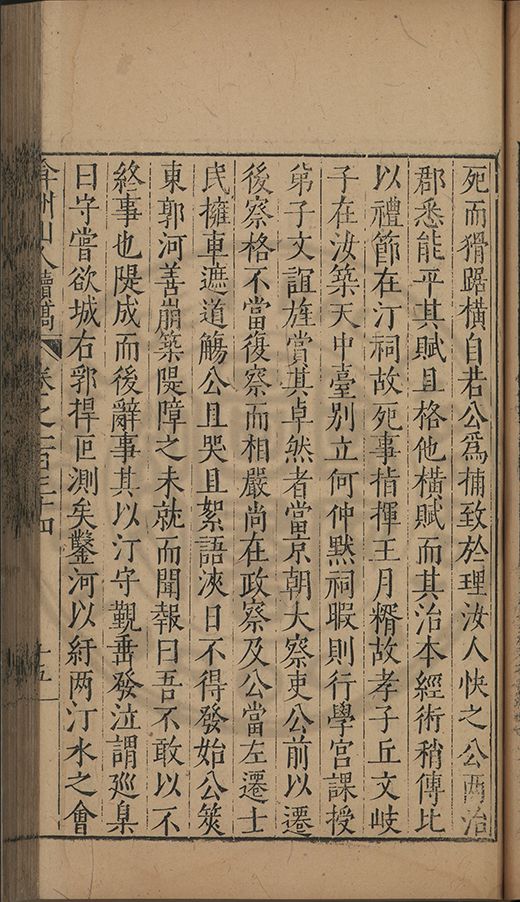 死而猾踞橫自若公為捕致於理汝人快之公兩治
郡悉能平其賦且格他橫賦而其治本經術稍傳比
以禮節在汀祠故死事指揮王月糈故孝子丘文岐
子在汝築天中臺別立何仲默祠暇則行學宮課授
第子文誼旌賞其卓然者當京朝大察吏公前以遷
後察格不當復察而相嚴尚在政察及公當左遷士
民擁車遮道觴公且哭且絮語浹日不得發始公築
東郭河善崩築隄障之未就而聞報曰吾不敢以不
終事也隄成而後辭事其以汀守覲垂發泣謂巡臬
曰守嘗欲城右郛捍叵測矣鑿河以紓两汀水之會
弇州山人續稿 卷之一百三十四 十五